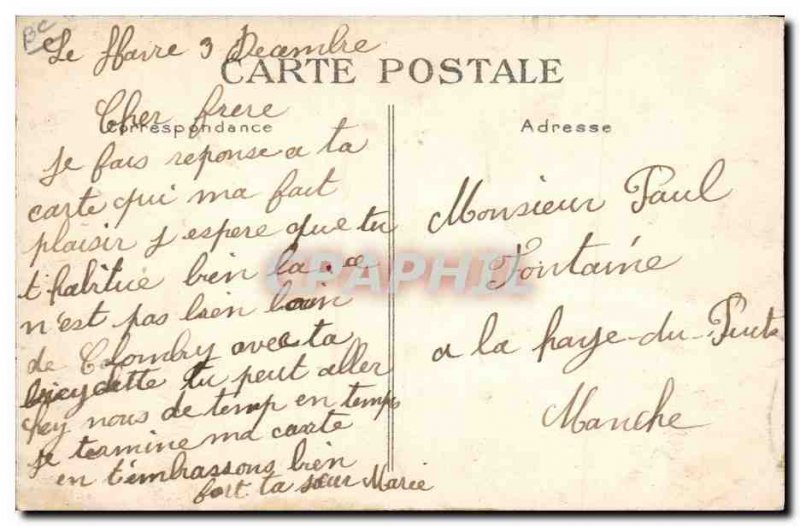 BC
Le Havre 3 Decembre
CARTE POSTALE
Cher frere
Correspondance
Je fais reponse a ta
carte qui ma fait
plaisir j espere que tu
t habitue bien la
n'est pas bien loin
de Colombry avec ta
bicyclette tu peut aller
chez nous de temp en temps
je termine ma carte
en t'embrassons bien
fort ta sœur Marie
Adresse
Monsieur Paul
Fontaine
a la haye-du-Puits
Manche
CPAPHIL